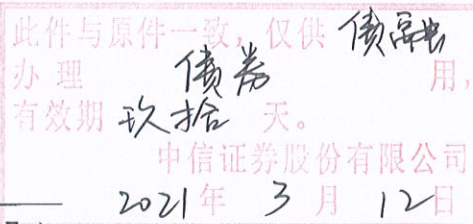 此件与原件一致，仅供 债融
办理 债券 用，
有效期 玖拾 天。
中信证券股份有限公司
2021年 3月 12日